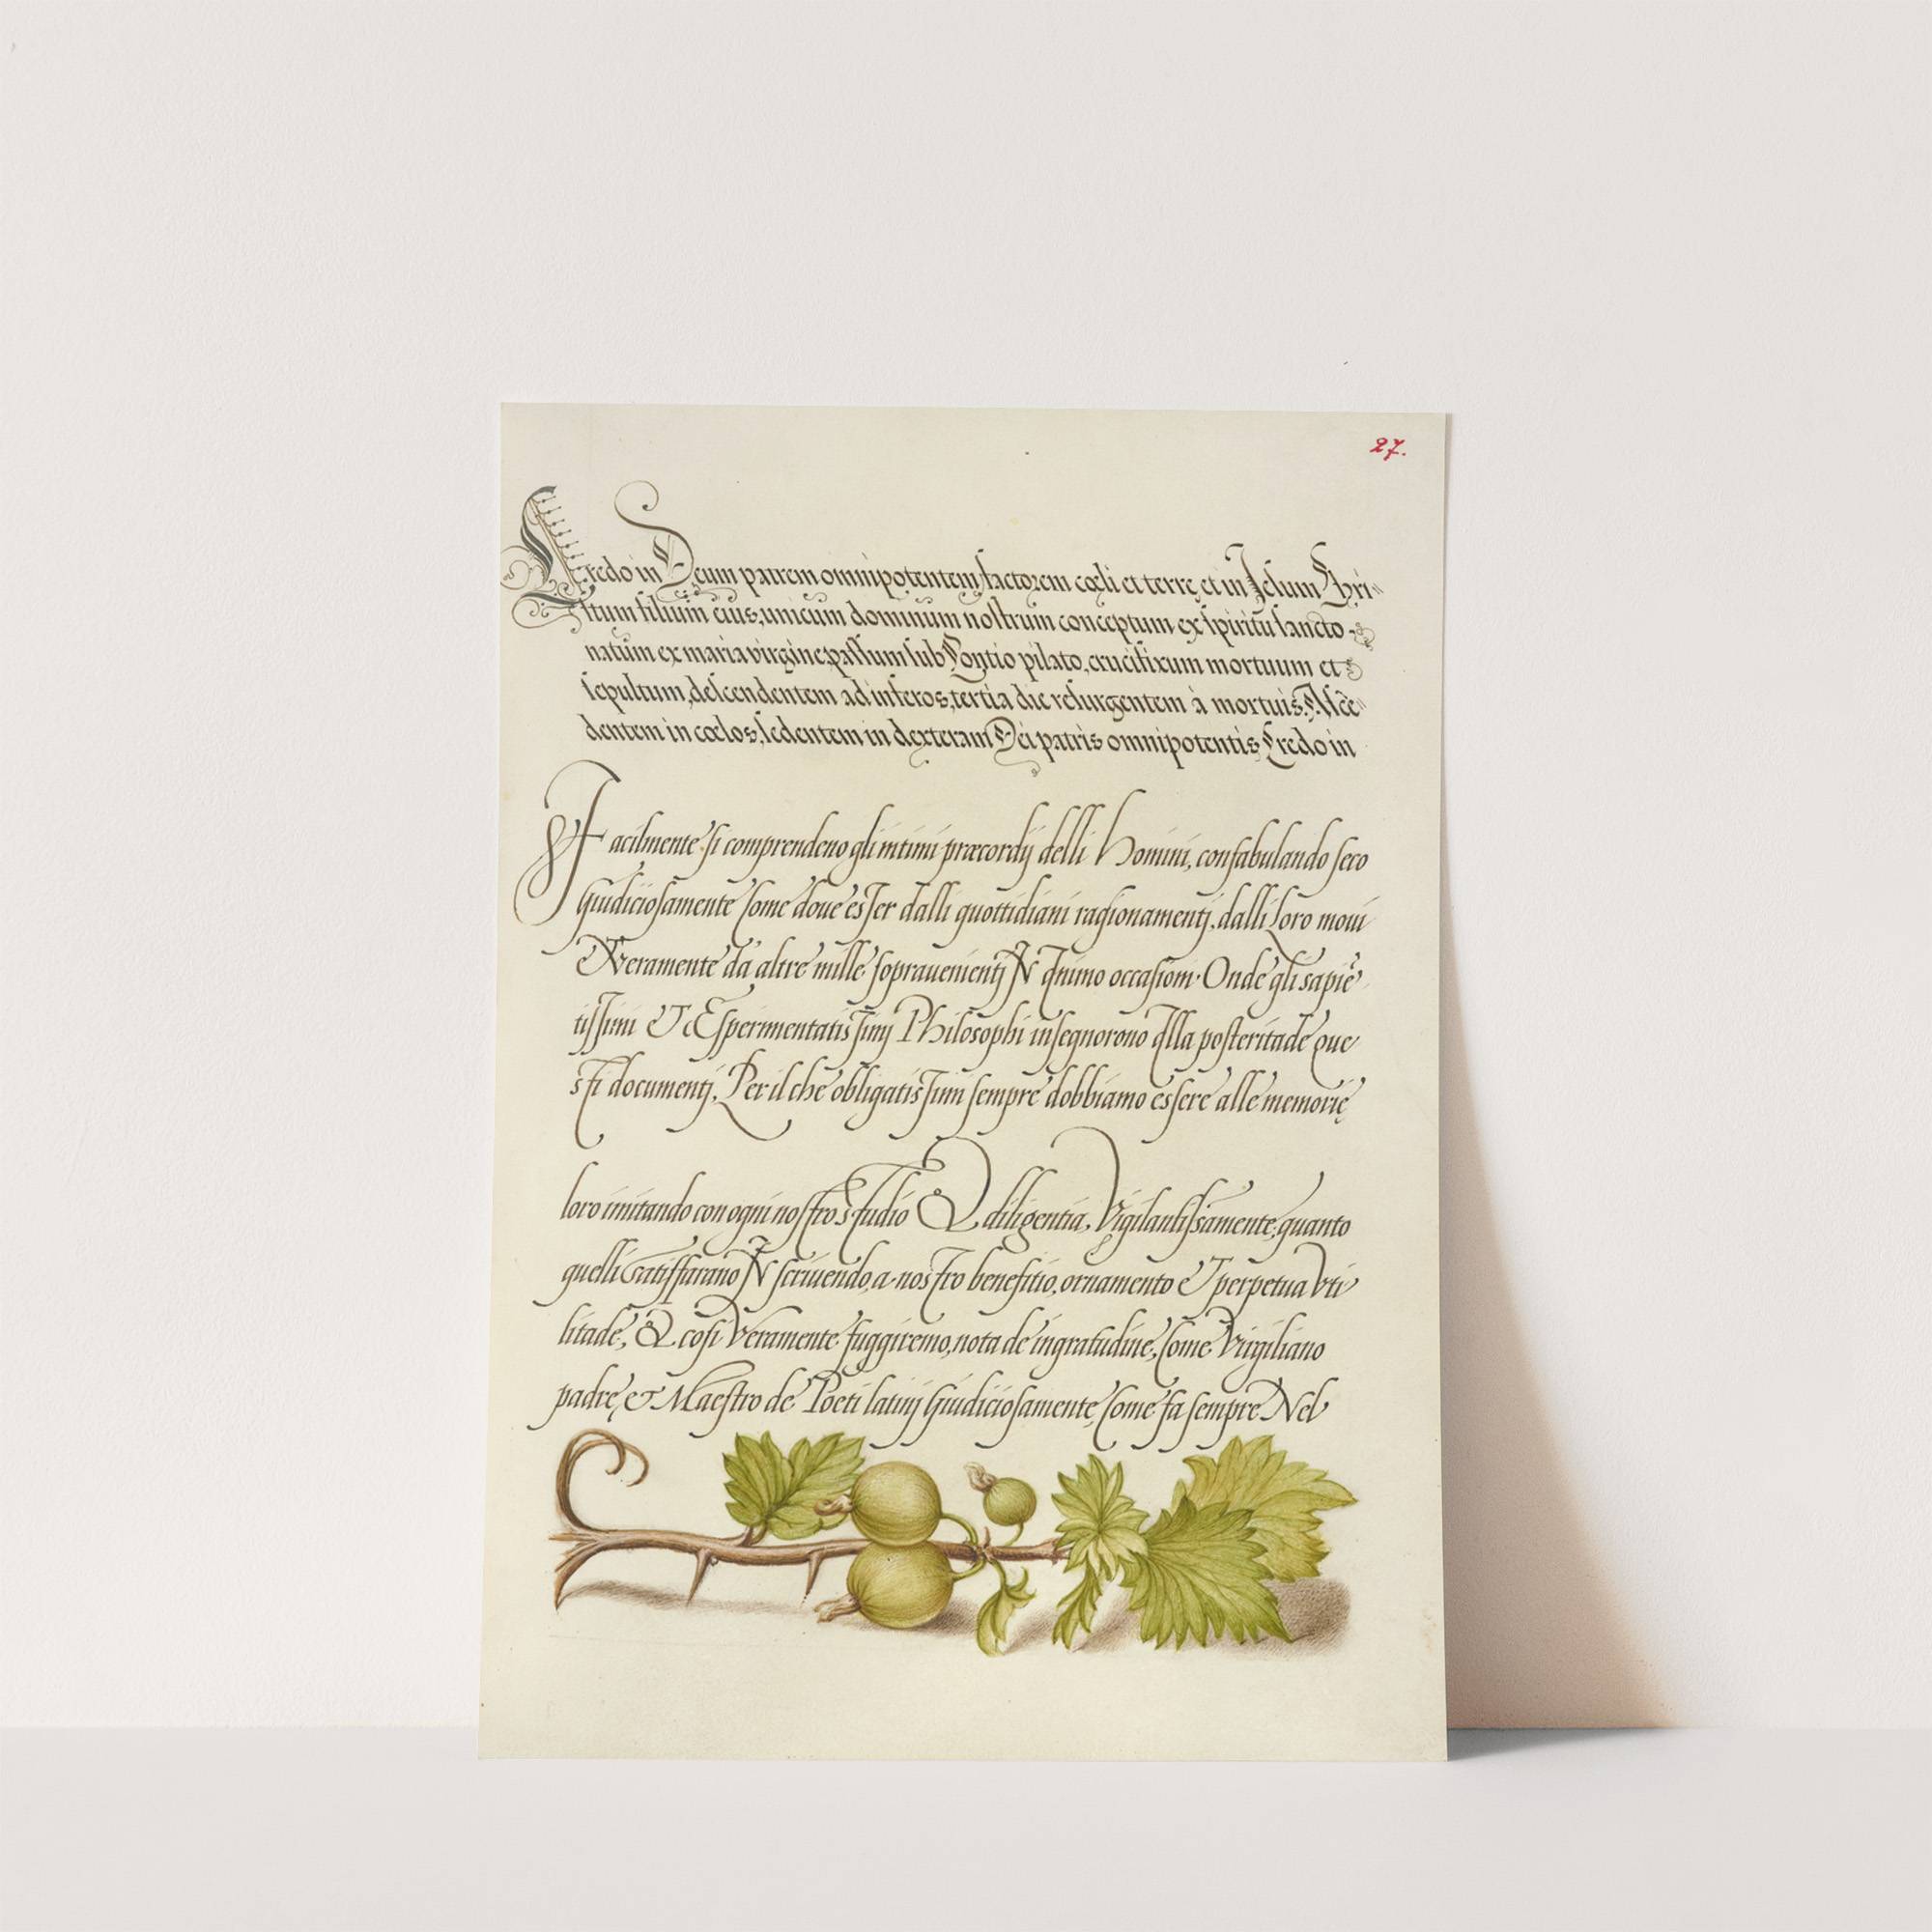 27.
Credo in Deum patrem omnipotentem, factorem cœli et terrę, et in Jesum Chri-
stum filium eius, unicum dominum nostrum conceptum ex spiritu sancto
natum ex maria virgine, passum sub Pontio pilato, crucifixum mortuum et
sepultum, descendentem ad inferos, tertia die resurgentem à mortuis. Ascē-
dentem in cœlos, sedentem in dexteram Dei patris omnipotentis Credo in
Facilmente si comprendeno gli intimi præcordij delli Homini, confabulando seco
Giudiciosamente Come doue esser dalli quottidiani ragionamentj, dalli Loro moui
O veramente da altre mille soprauenientj N Animo occasioni. Onde gli sapiē
tissimi & Esperimentatissimj Philosophi insegnorono Alla posteritade que
sti documentj, Per il che obligatissimi sempre dobbiamo essere alle memorię
loro imitando con ogni nostro studio & diligentia, Vigilantissamente, quanto
quelli satisffarano N scriuendo, a nostro benefitio, ornamento & perpetua Vti
litade, & cosi Veramente fuggiremo, nota de ingratudine, Come Virgiliano
padre, et Maestro de Poeti latinj Giudiciosamente, Come fa sempre Nel